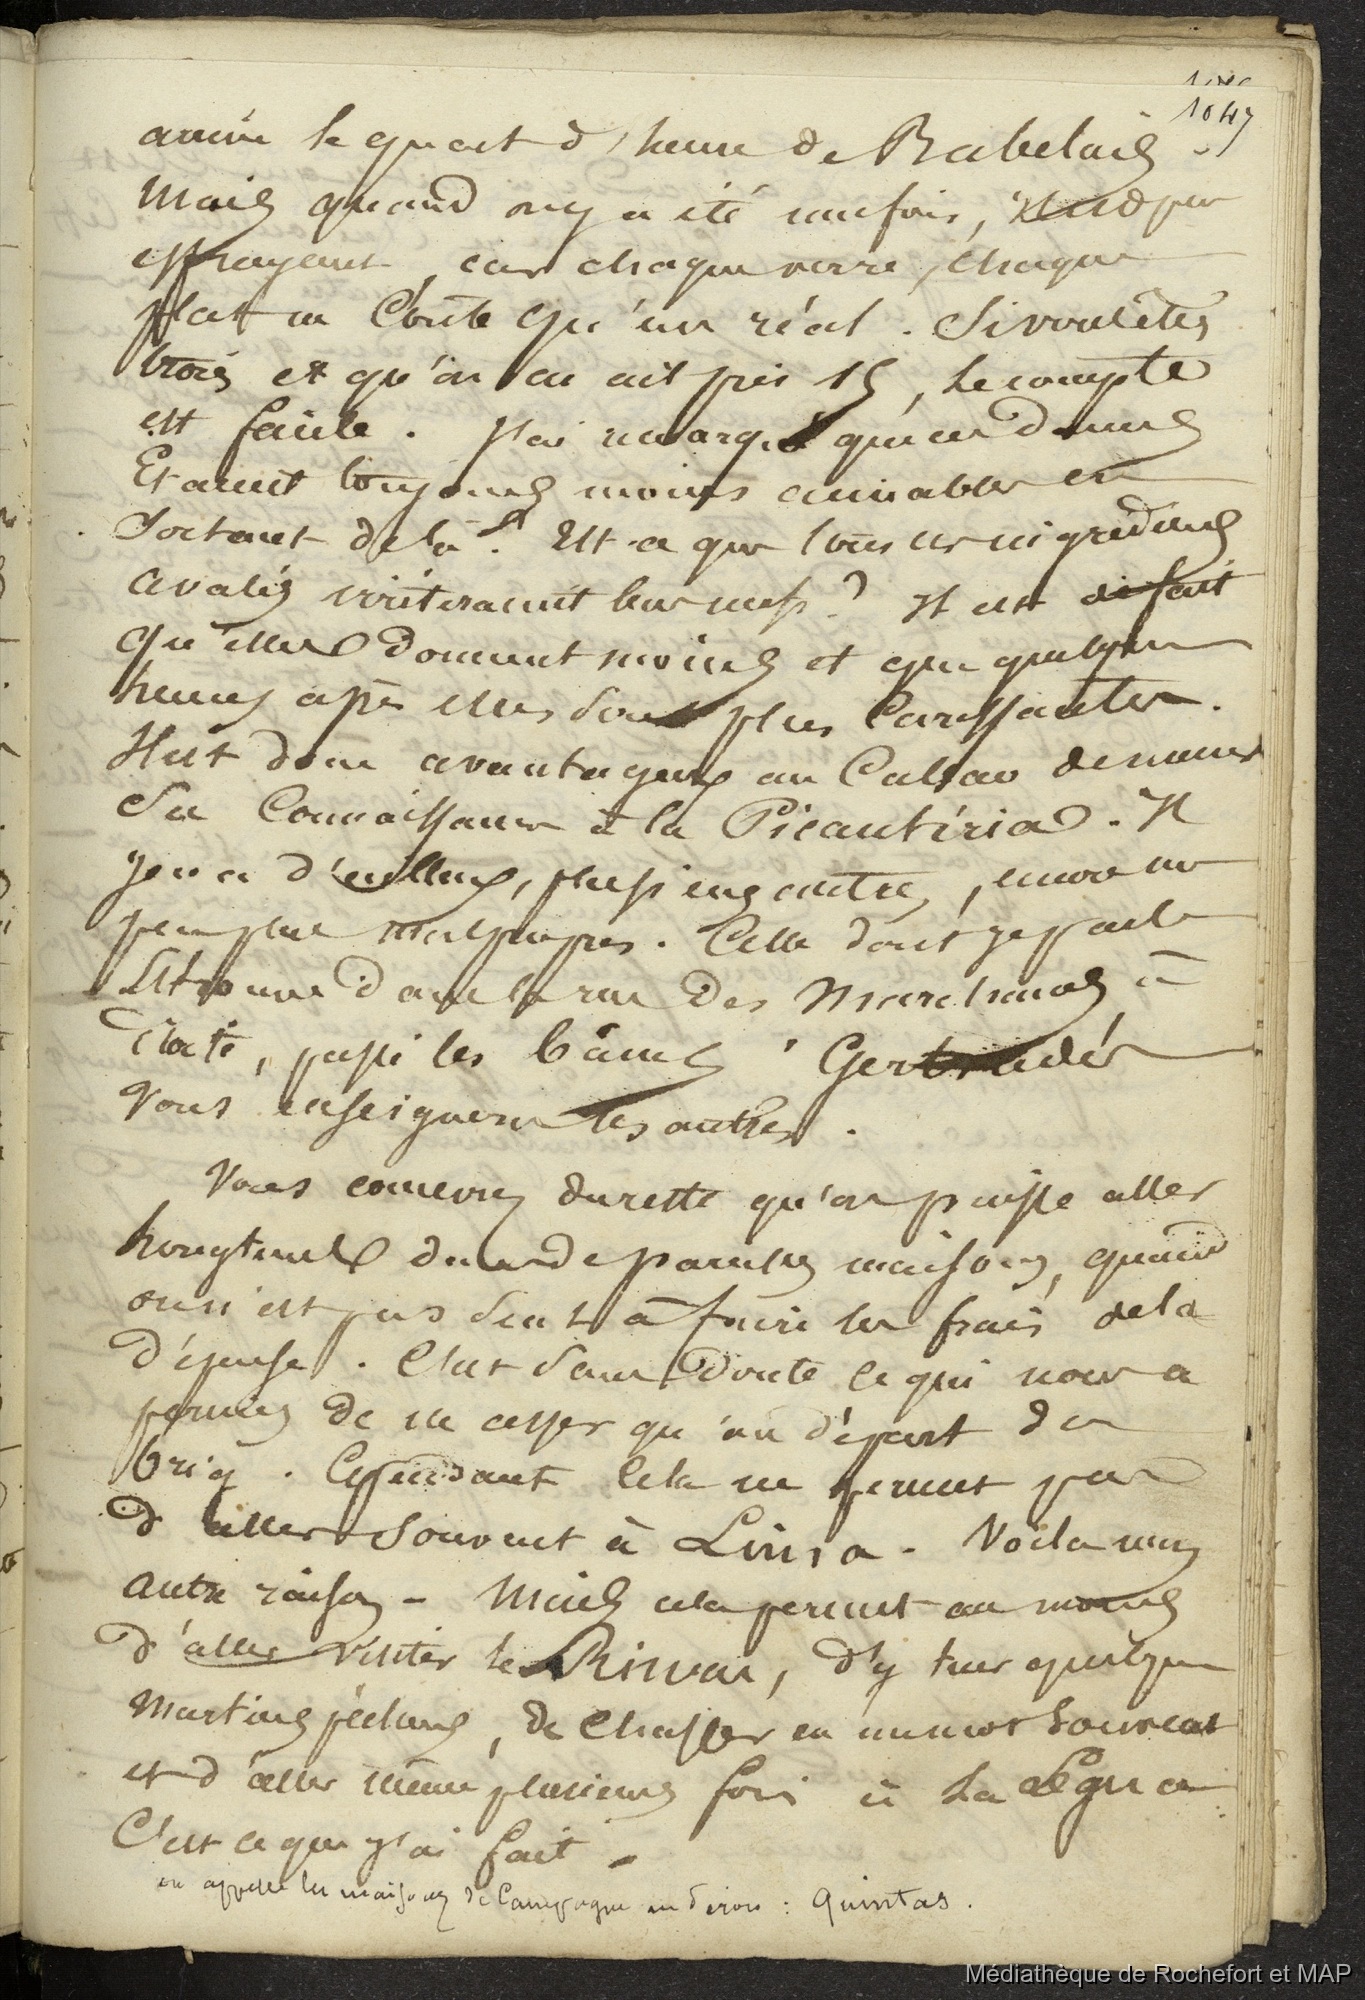 1047
arrive le quart d'heure de Rabelais.
Mais quand on y a été une fois, il n'est pas
effrayant, car chaque verre, chaque
plat ne coûte qu'un réal. Si vous êtes
trois et qu'on en ait pris 15, le compte
est facile. J'ai remarqué que ces dames
étaient toujours moins aimables en
sortant de là. Est-ce que tous ces ingrédiens
avalés irriteraient leurs nerfs ? Il est de fait
qu'elles donnent moins et que quelques
heures après elles sont plus caressantes.
Il est donc avantageux au Callao de mener
sa connaissance à la Picantéria. Il
y en a d'ailleurs, plusieurs autres, encore un
peu plus malpropres. Celle dont je parle
se trouve dans la rue des Marchands, à
côté, passé les bains. Gertrudés
vous enseignera les autres.
Vous concevez du reste qu'on puisse aller
longtems dans de pareilles maisons, quand
on n'est pas seul à faire les frais de la
dépense. C'est sans doute ce qui nous a
permis de ne cesser qu'au départ du
brig. Cependant cela ne permet pas
d'aller souvent à Lima. Voila une
autre raison. Mais cela permet au moins
d'aller visiter le Rimac, d'y tuer quelques
martins pêcheurs, de chasser en un mot souvent
et d'aller même plusieurs fois à La Légua
C'est ce que j'ai fait.
on appelle les maisons de Campagne au Pérou : Quintas.
Médiathèque de Rochefort et MAP